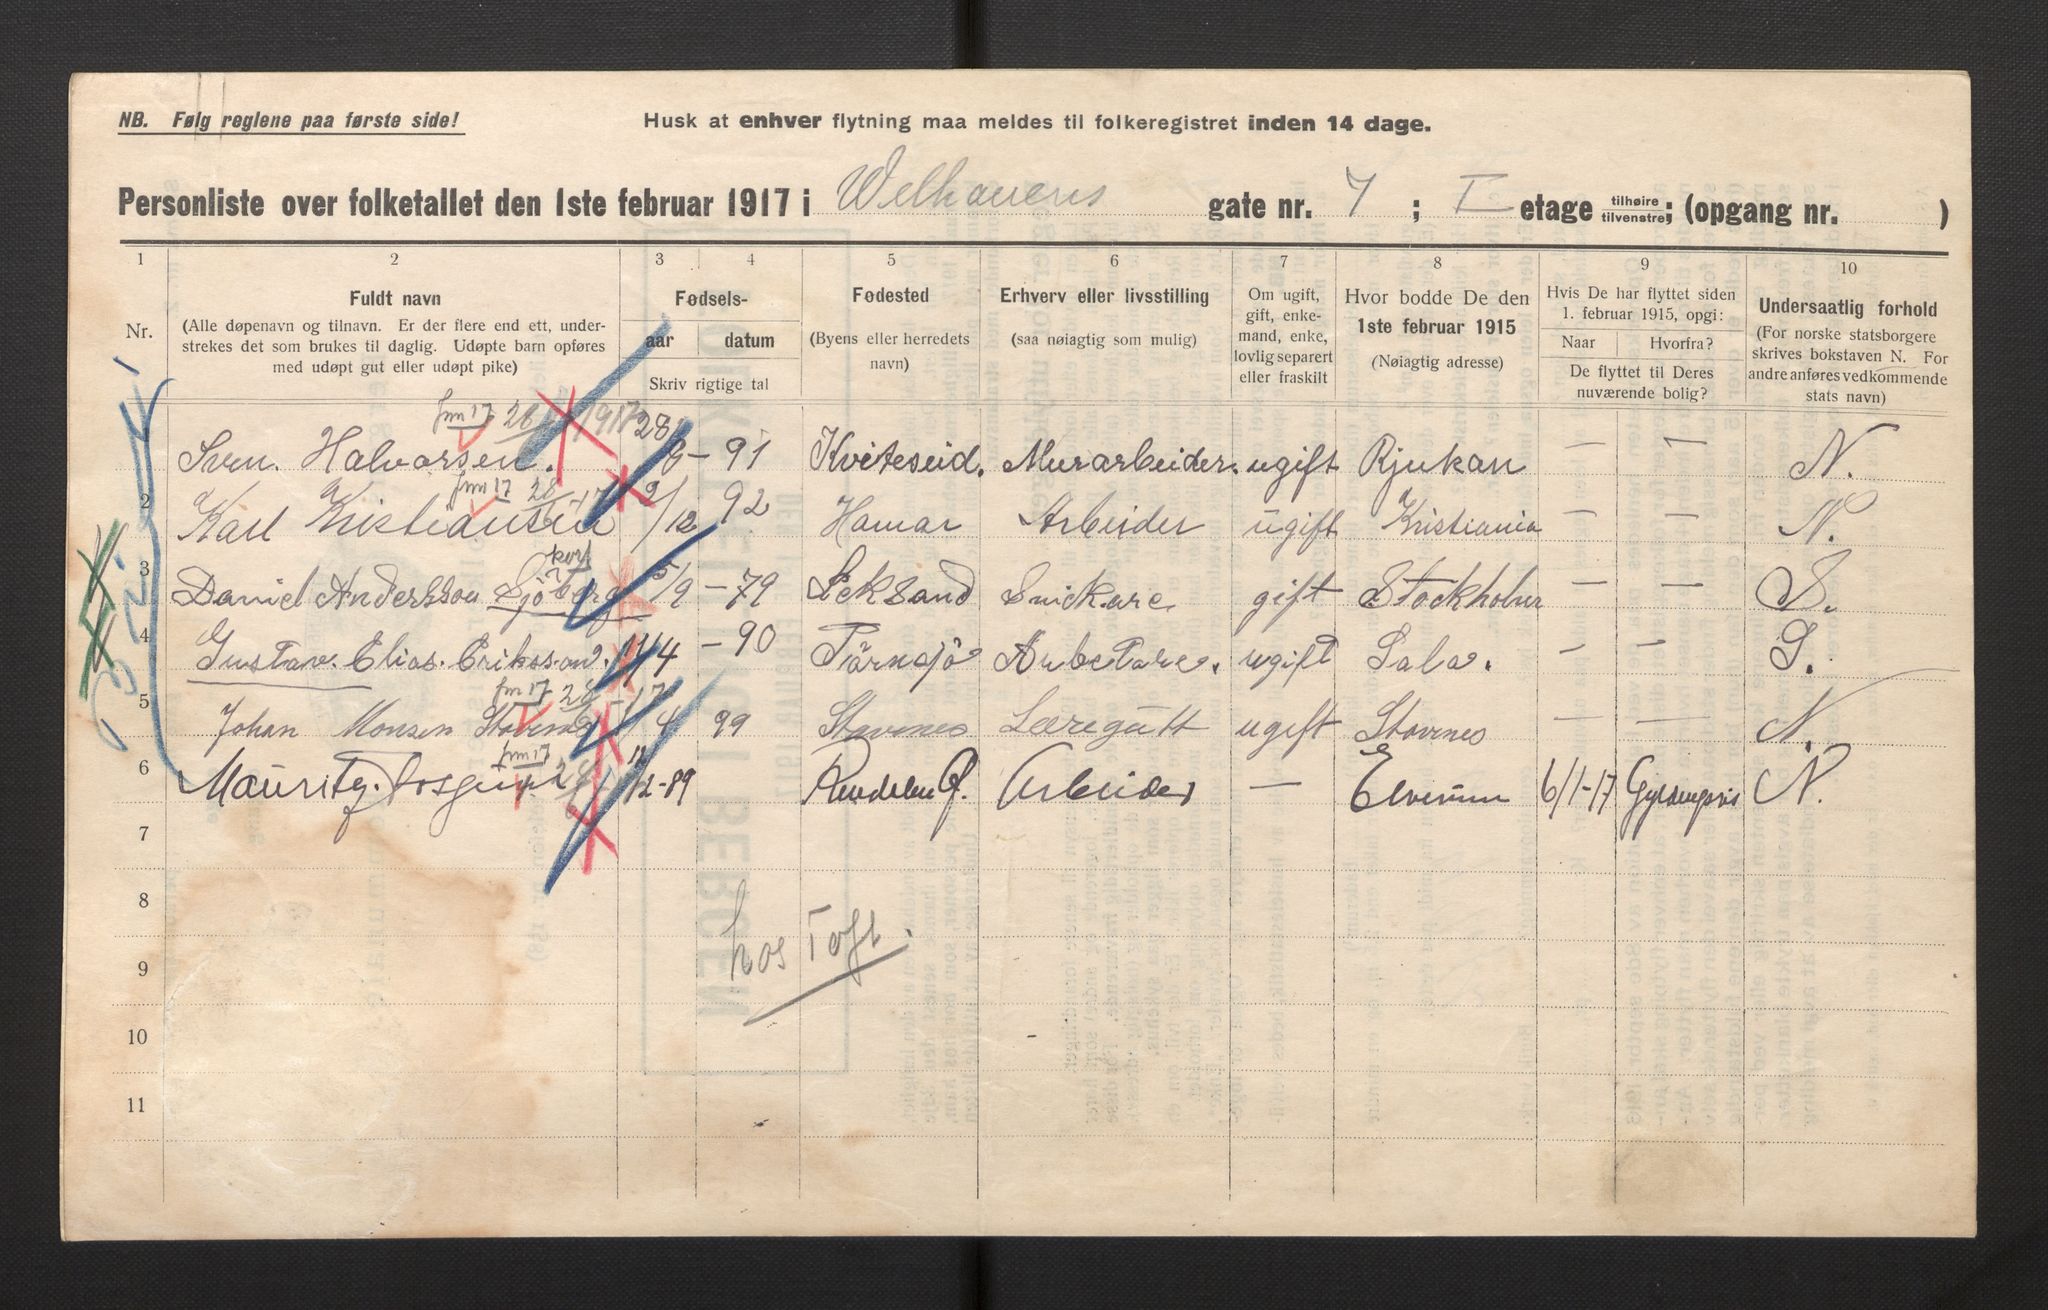 NB. Følg reglene paa første side!
Husk at enhver flytning maa meldes til folkeregistret inden 14 dage.
Personliste over folketallet den 1ste februar 1917 i Welhavens gate nr. 7 ; I etage tilhøire tilvenstre; (opgang nr. )
1 2 3 4 5 6 7 8 9 10
Nr.
Fuldt navn
(Alle døpenavn og tilnavn. Er der flere end ett, under-
strekes det som brukes til daglig. Udøpte barn opføres
med udøpt gut eller udøpt pike)
Fødsels-
aar datum
Skriv rigtige tal
Fødested
(Byens eller herredets
navn)
Erhverv eller livsstilling
(saa nøiagtig som mulig)
Om ugift,
gift, enke-
mand, enke,
lovlig separert
eller fraskilt
Hvor bodde De den
1ste februar 1915
(Nøiagtig adresse)
Hvis De har flyttet siden
1. februar 1915, opgi:
Naar Hvorfra?
De flyttet til Deres
nuværende bolig?
Undersaatlig forhold
(For norske statsborgere
skrives bokstaven N. For
andre anføres vedkommende
stats navn)
fm 17 28 1917
1 Sven. Halvorsen. 28/6 - 91 Kviteseid. Murarbeider. ugift Rjukan — — N.
fm 17 28 17
2 Karl Kristiansen 2/12 92 Hamar Arbeider ugift Kristiania — — N.
3 Daniel Andersson Sjöberg 5/9 - 79 Leksand Snickare gift Stockholm — — S.
4 Gustav. Elias. Eriksson. 11/4 - 90 Törnsjö Arbetare. ugift Sala. — — S.
fm 17 28 17
5 Johan Monsen Stavenes 4 99 Stavenes Læregutt ugift Stavnes — — N.
fm 17 28
6 Mauritz. 12/12-89 Arbeider — Elverum 6/1-17 N.
7
8
hos Toft.
9
10
11